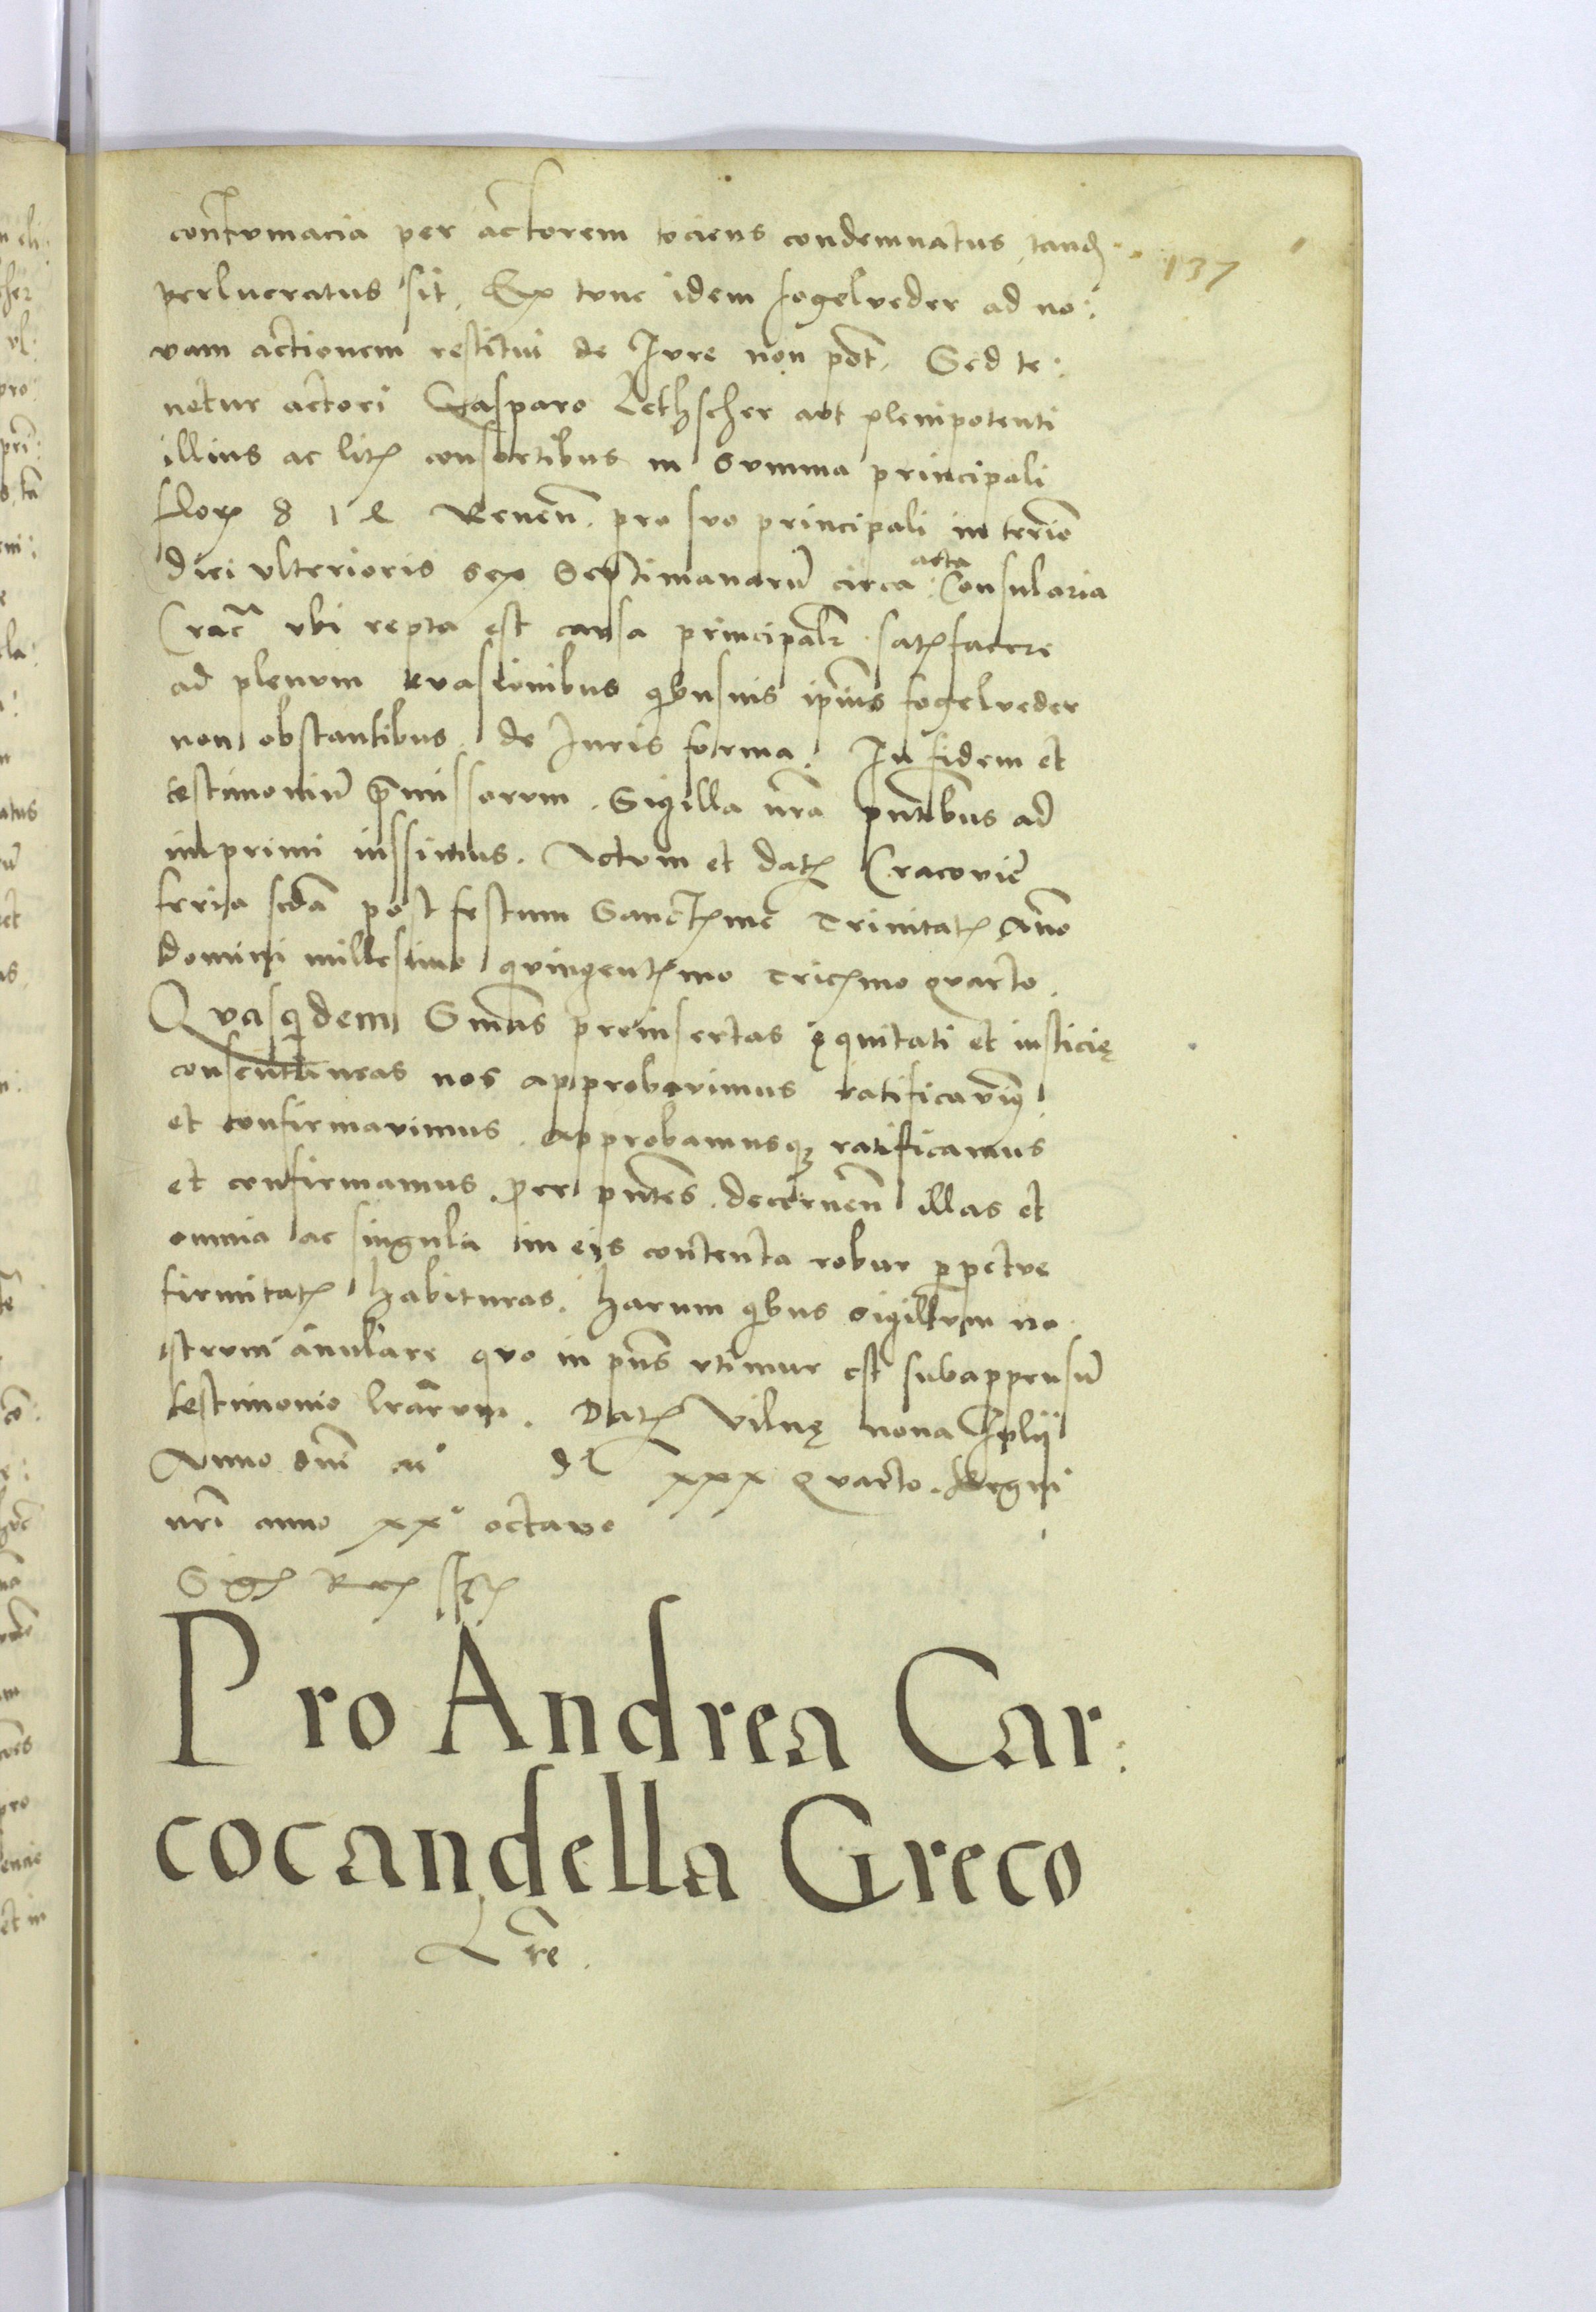 137
contumacia per actorem tociens condemnatus, tandē
perlucratus sit. Ex tunc idem Fogelveder ad no:
vam actionem restitui de Iure non pōt. Sed te:
netur actori Gasparo Lethscher aut plenipotenti
illius ac litꝭ consortibus in summa principali
Florꝭ Renēn. pro suo principali in termīo
diei ulterioris sex septimanarū circa acta Consularia
Crac̄ ubi cepta est causa principalꝭ satꝭfacere
ad plenum evasionibus qbusvis ipīus Fogelveder
non obstantibus de Iuris forma. In fidem et
testimoniū p̄missorum. Sigilla nrā pn̄tibus ad
imprimi iussimus. Actum et datꝭ Cracovie
feria scdā post festum Sanctꝭme Trinitatꝭ Anno
domini millesimo quingentꝭmo Tricꝭmo quarto.
Quasquidem Smn̄as preinsertas ęquitati et iusticię
consentaneas nos approbavimus ratificavimꝯ
et confirmavimus. approbamusqꝫ ratificamus
et confirmamus per pn̄tes. decernēn illas et
omnia ac singula in eis contenta robur ꝑpetue
firmitatꝭ habituras. harum qbus sigillum no
strum anulare quo in pn̄s utimur est subappensū
testimonio lrārum. Datꝭ Vilnę nona Iulij
Anno dnī M° D xxx quarto. Regni
nrī anno xx° octavo
Sigꝭ Rex sst
Pro Andrea Car:
cocandella Greco
Lrē.